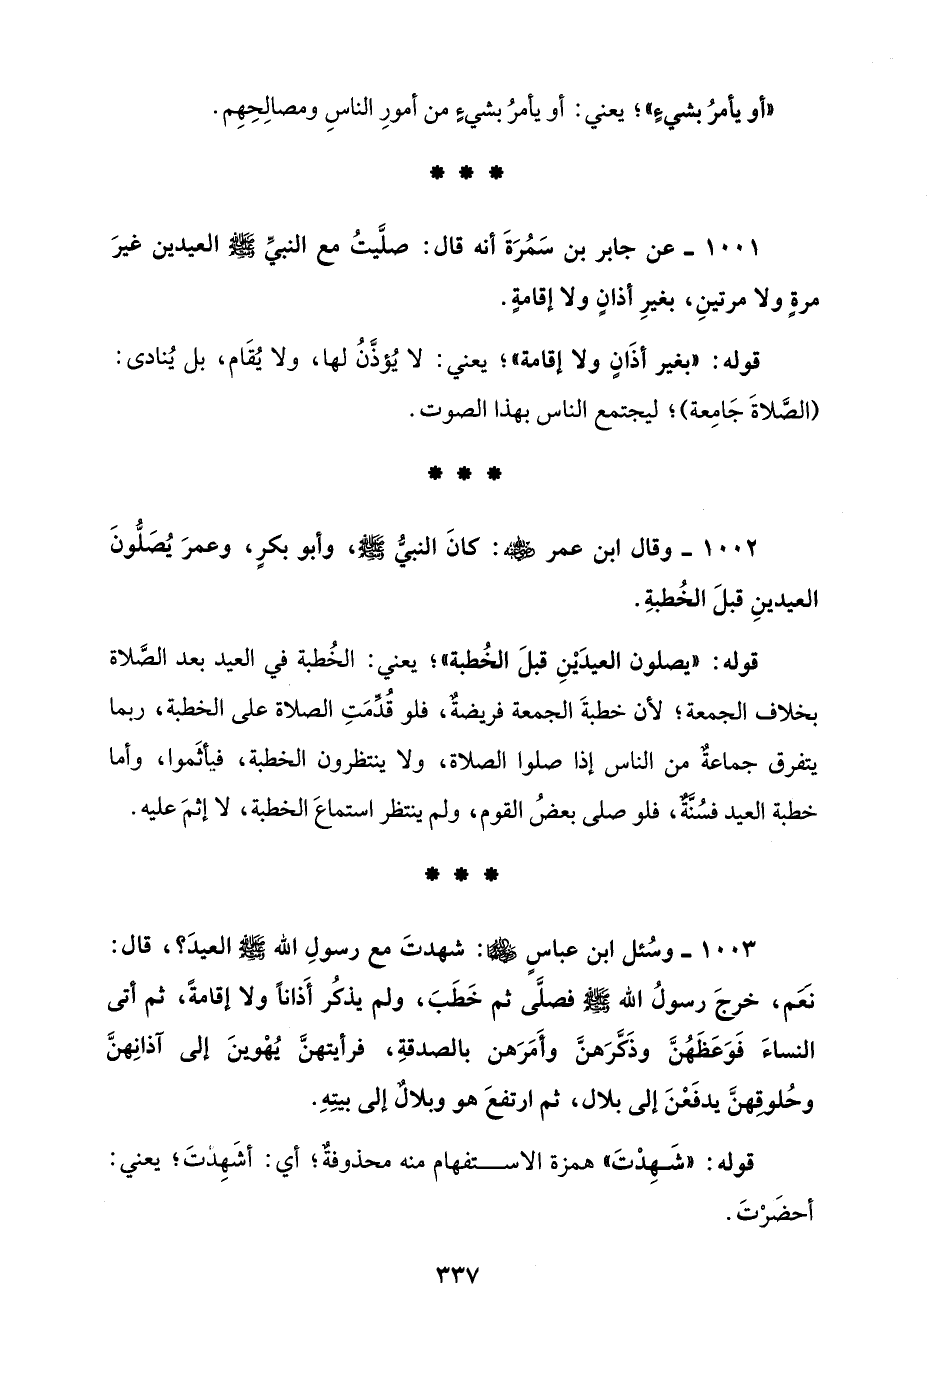 «أو يأمرُ بشيءٍ»؛ يعني: أو يأمرُ بشيءٍ من أمورِ الناسِ ومصالِحِهِم.
* * *
١٠٠١ ـ عن جابر بن سَمُرَةَ أنه قال: صلَّيتُ مع النبيِّ ﷺ العيدين غيرَ
مرةٍ ولا مرتينِ، بغيرِ أذانٍ ولا إقامةٍ.
قوله: «بغير أذَانٍ ولا إقامة»؛ يعني: لا يُؤذَّنُ لها، ولا يُقَام، بل يُنادى:
(الصَّلاةَ جَامِعة)؛ ليجتمع الناس بهذا الصوت.
* * *
١٠٠٢ ـ وقال ابن عمر ﵄: كانَ النبيُّ ﷺ، وأبو بكرٍ، وعمرَ يُصَلُّونَ
العيدينِ قبلَ الخُطبةِ.
قوله: «يصلون العيدَيْنِ قبلَ الخُطبة»؛ يعني: الخُطبة في العيد بعد الصَّلاة
بخلاف الجمعة؛ لأن خطبةَ الجمعة فريضةٌ، فلو قُدِّمَتِ الصلاة على الخطبة، ربما
يتفرق جماعةٌ من الناس إذا صلوا الصلاة، ولا ينتظرون الخطبة، فيأثَموا، وأما
خطبة العيد فسُنَّةٌ، فلو صلى بعضُ القوم، ولم ينتظر استماعَ الخطبة، لا إثمَ عليه.
* * *
١٠٠٣ ـ وسُئل ابن عباسٍ ﵄: شهدتَ مع رسولِ الله ﷺ العيدَ؟، قال:
نعَم، خرجَ رسولُ الله ﷺ فصلَّى ثم خَطَبَ، ولم يذكُر أَذاناً ولا إقامةً، ثم أتى
النساءَ فَوَعَظَهُنَّ وذَكَّرَهنَّ وأَمَرَهن بالصدقةِ، فرأيتهنَّ يُهْوينَ إلى آذانِهنَّ
وحُلوقِهنَّ يدفَعْنَ إلى بلال، ثم ارتفعَ هو وبلالٌ إلى بيتِهِ.
قوله: «شَهِدْتَ» همزة الاستفهام منه محذوفةٌ؛ أي: أشَهِدْتَ؛ يعني:
أحضَرْتَ.
٣٣٧